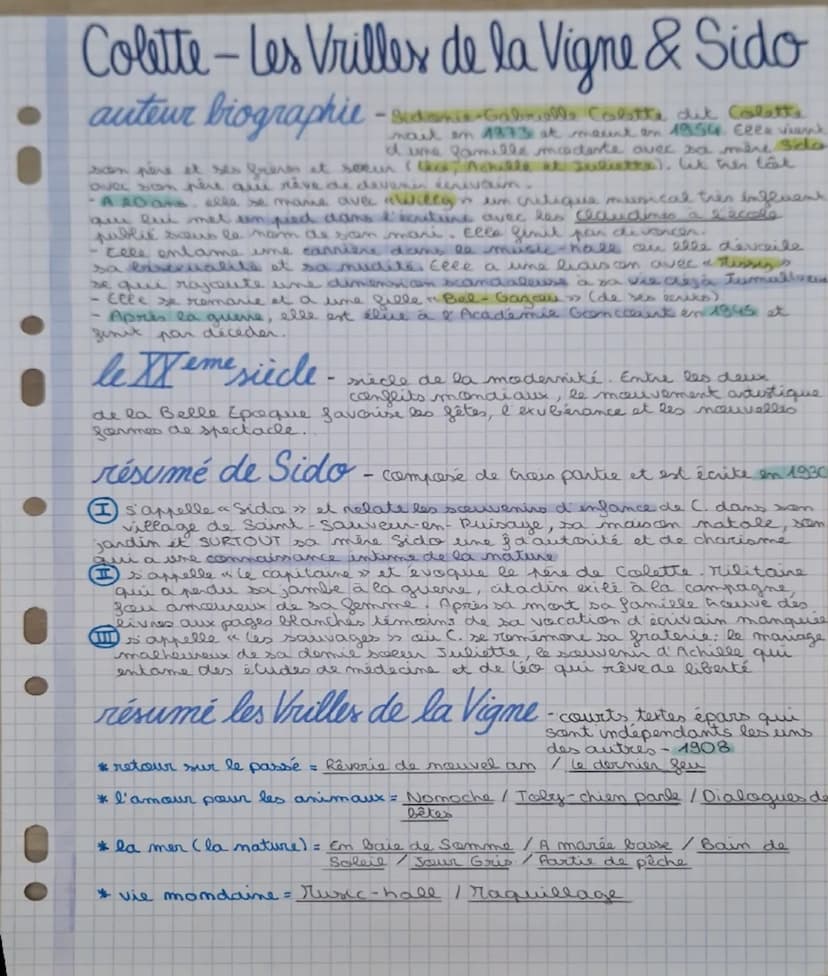 Colette - Les Vrilles de la Vigne & Sido
auteur biographie - Sidonie-Gabrielle Colette dit Colette
nait en 1973 et meurt en 1954. Elle vient
d'une famille modeste avec sa mère Sido
son père et ses frères et soeur (Léo, Achille et Juliette). Lit très tôt
avec son père qui rêve de devenir écrivain.
- A 20 ans, elle se marie avec « Willy » un critique musical très influent
qui lui met un pied dans l'écriture avec les Claudines à l'école
publié sous le nom de son mari. Elle finit par divorcer.
- Elle entame une carrière dans le music-hall où elle dévoile
sa bisexualité et sa nudité. Elle a une liaison avec « Missy »
se qui rajoute une dimension scandaleuse à sa vie déjà tumultueuse
- Elle se remarie et a une fille « Bel-Gazou » (de ses écrits)
- Après la guerre, elle est élue à l'Académie Goncourt en 1945 et
finit par décéder.
le XXème siècle - siècle de la modernité. Entre les deux
conflits mondiaux, le mouvement artistique
de la Belle Epoque favorise les fêtes, l'exubérance et les nouvelles
formes de spectacle.
résumé de Sido - composé de trois partie et est écrite en 1930
I s'appelle « Sido » et relate les souvenirs d'enfance de C. dans son
village de Saint-Sauveur-en-Puisaye, sa maison natale, son
jardin et SURTOUT sa mère Sido une f d'autorité et de charisme
qui a une connaissance intime de la nature
II s'appelle « le capitaine » et évoque le père de Colette. Militaire
qui a perdu sa jambe à la guerre, citadin exilé à la campagne,
fou amoureux de sa femme. Après sa mort sa famille trouve des
livres aux pages blanches témoins de sa vocation d'écrivain manquée
III s'appelle « les sauvages » où C. se remémore sa fraterie: le mariage
malheureux de sa demie soeur Juliette, le souvenir d'Achille qui
entame des études de médecine et de Léo qui rêve de liberté
résumé les Vrilles de la Vigne - courts textes épars qui
sont indépendants les uns
des autres - 1908
* retour sur le passé = Rêverie de nouvel an / Le dernier feu
* l'amour pour les animaux = Nonoche / Toby-chien parle / Dialogues de
bêtes
* la mer (la nature) = En Baie de Somme / A marée basse / Bain de
Soleil / Jour Gris / Partie de pêche
* vie mondaine = Music-hall / Maquillage